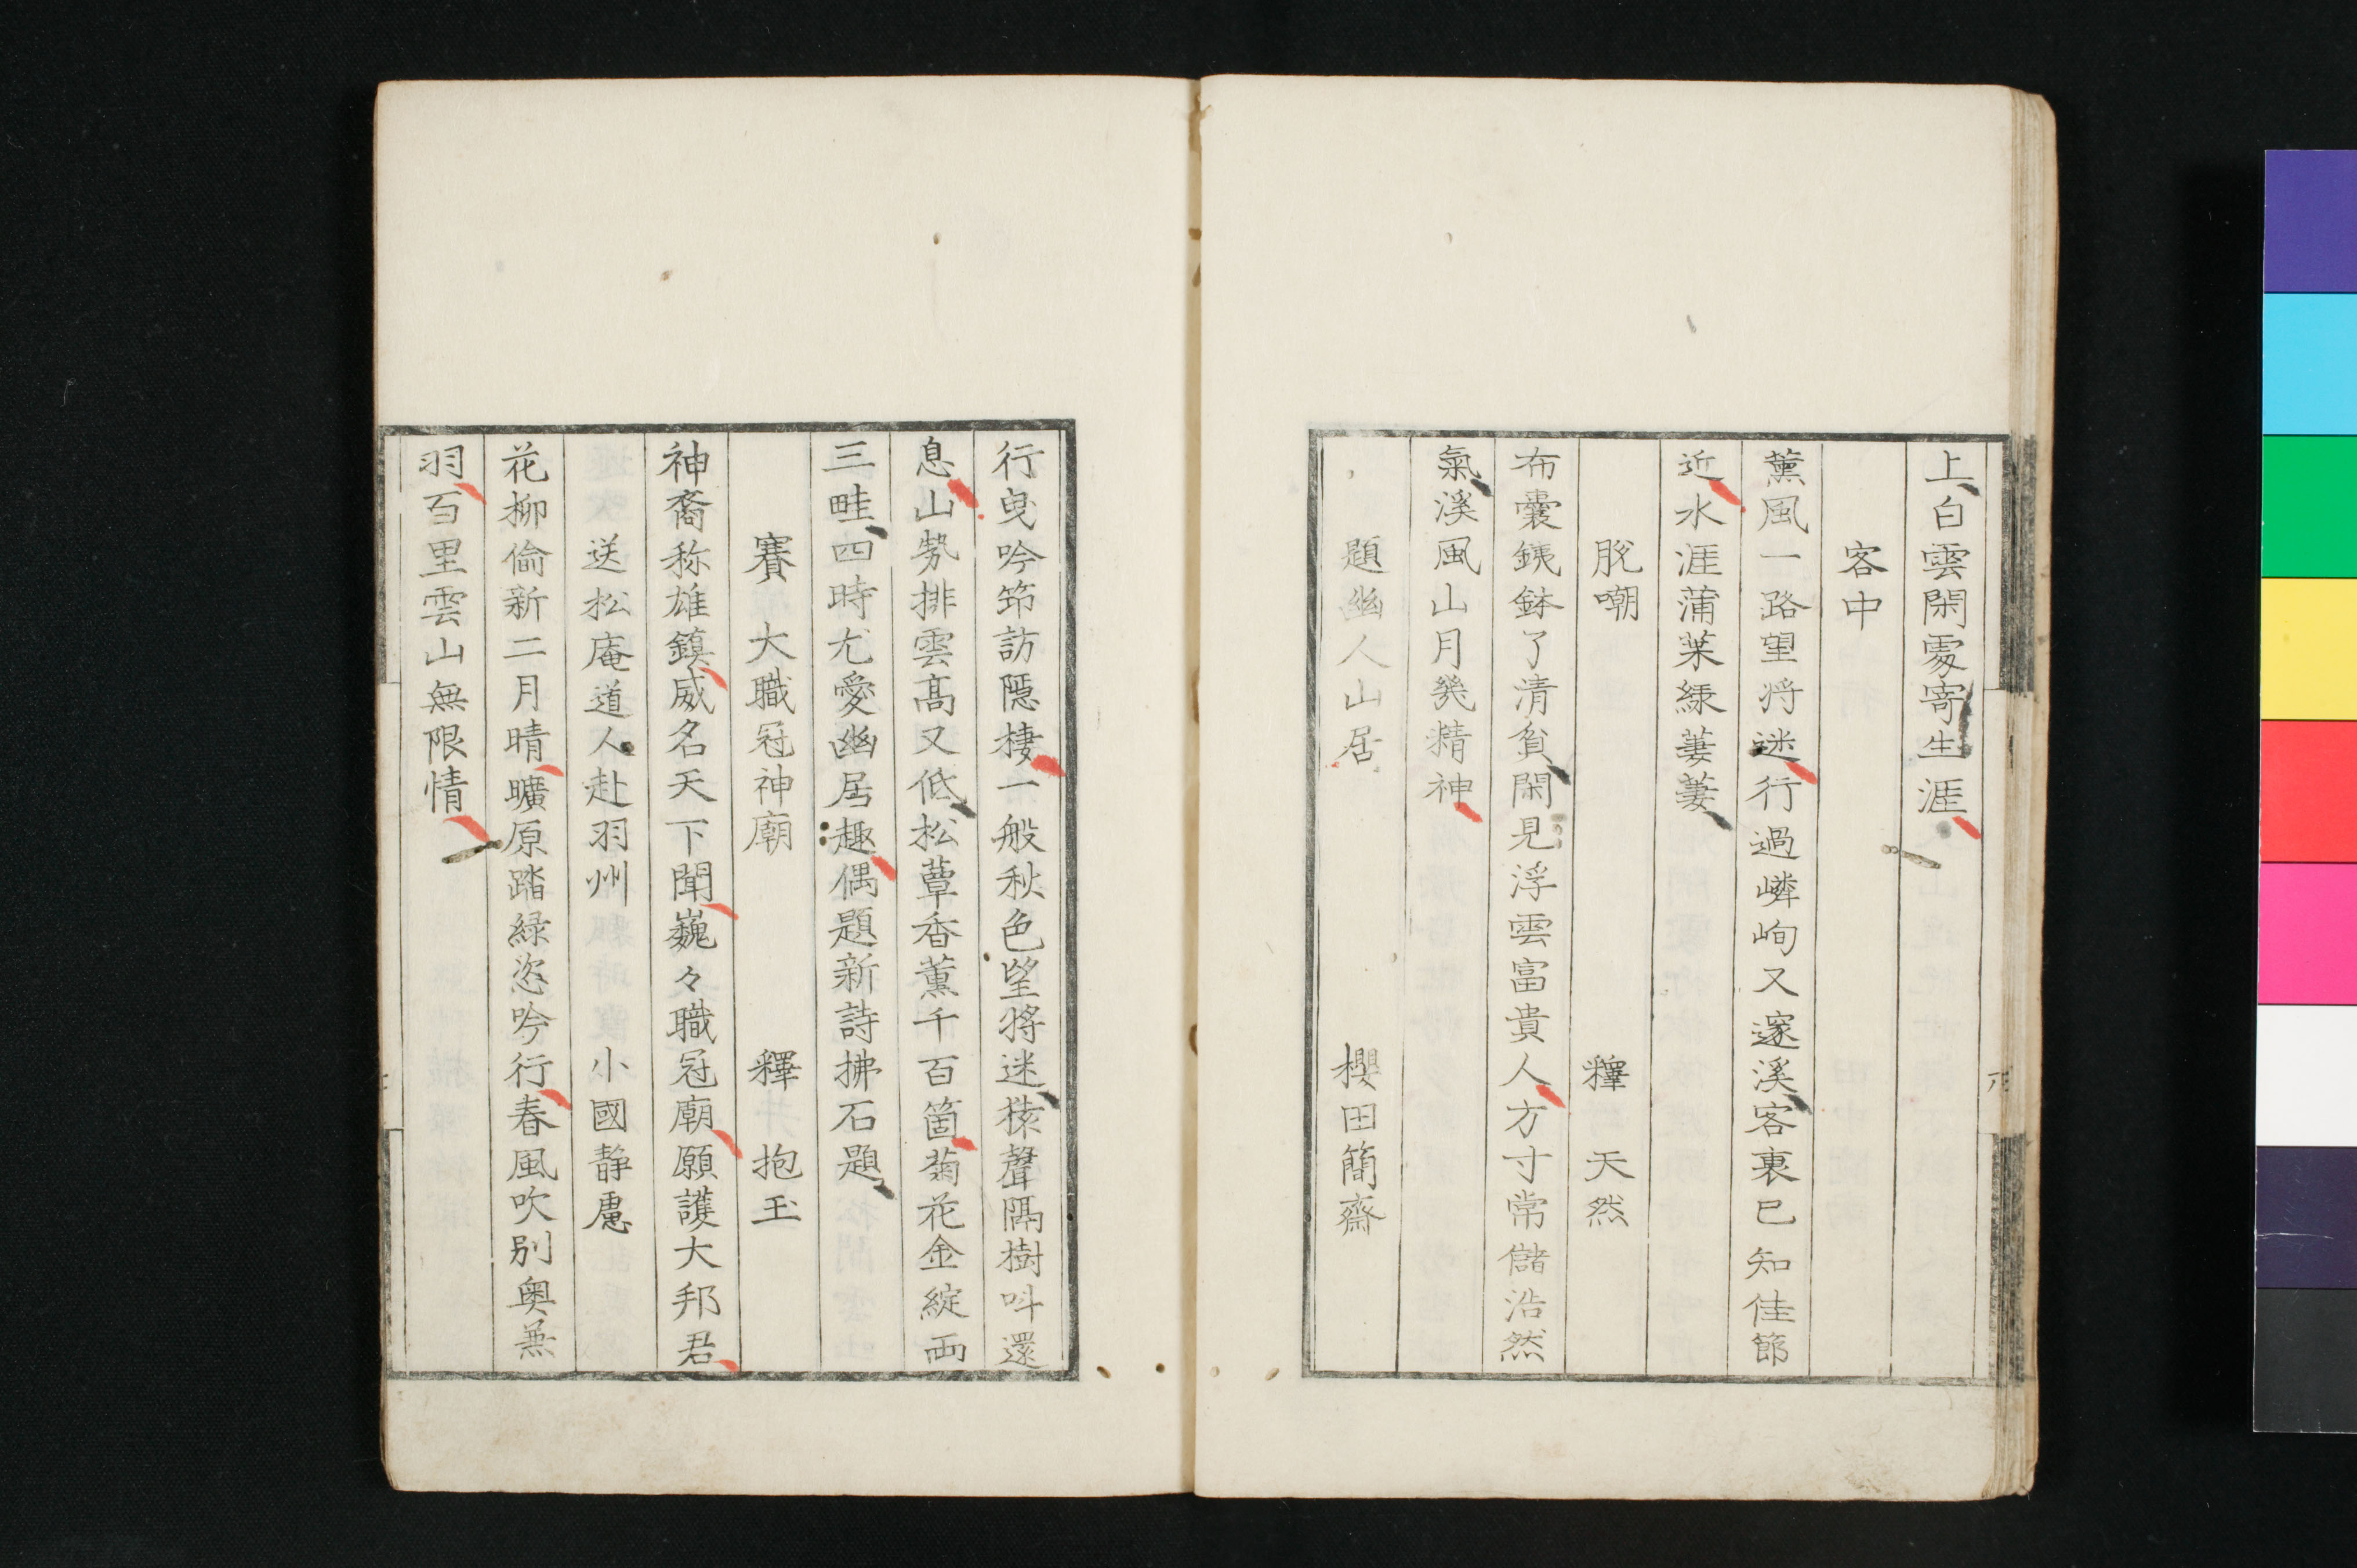 上白雲閑處寄生涯
客中
薫風一路望将迷行過嶙峋又邃溪客裏已知佳節
近水涯蒲葉緑萋萋
脱嘲　釋　天然
布嚢銕鉢了清貧閑見浮雲富貴人方寸常儲浩然
氣溪風山月㡬精神
題幽人山居　櫻田簡齋
行曳吟笻訪隠棲一般秋色望将迷猿聲隔樹呌還
息山勢排雲髙又低松蕈香薫千百箇菊花金綻両
三畦四時尤愛幽居趣偶題新詩拂石題
賽　大職冠神廟　釋　抱玉
神裔称雄鎮威名天下聞巍々職冠廟願護大邦君
送松庵道人赴羽州　小國静慮
花柳倫新二月晴曠原踏緑恣吟行春風吹別奥兼
羽百里雲山無限情